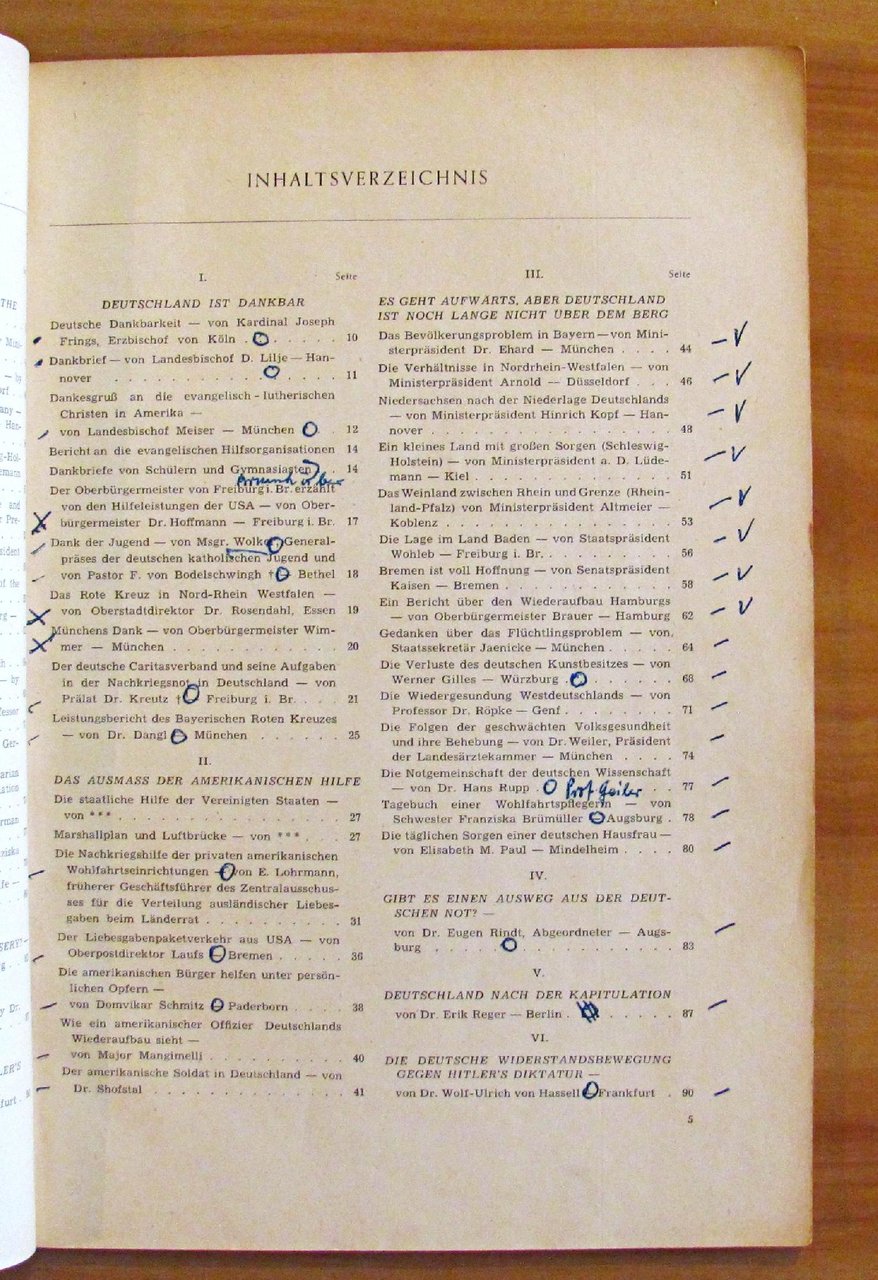 INHALTSVERZEICHNIS
I.
Seite
DEUTSCHLAND IST DANKBAR
Deutsche Dankbarkeit — von Kardinal Joseph
Frings, Erzbischof von Köln . . . . . . . 10
Dankbrief — von Landesbischof D. Lilje — Han-
nover . . . . . . . . . . . . . . . 11
Dankesgruß an die evangelisch-lutherischen
Christen in Amerika —
von Landesbischof Meiser — München . . 12
Bericht an die evangelischen Hilfsorganisationen 14
Dankbriefe von Schülern und Gymnasiasten . . 14
Der Oberbürgermeister von Freiburg i. Br. erzählt
von den Hilfeleistungen der USA — von Ober-
bürgermeister Dr. Hoffmann — Freiburg i. Br. 17
Dank der Jugend — von Msgr. Wolker, General-
präses der deutschen katholischen Jugend und
von Pastor F. von Bodelschwingh † — Bethel 18
Das Rote Kreuz in Nord-Rhein Westfalen —
von Oberstadtdirektor Dr. Rosendahl, Essen 19
Münchens Dank — von Oberbürgermeister Wim-
mer — München . . . . . . . . . . . 20
Der deutsche Caritasverband und seine Aufgaben
in der Nachkriegsnot in Deutschland — von
Prälat Dr. Kreutz † Freiburg i. Br. . . . 21
Leistungsbericht des Bayerischen Roten Kreuzes
— von Dr. Dangl — München . . . . . . 25
II.
DAS AUSMASS DER AMERIKANISCHEN HILFE
Die staatliche Hilfe der Vereinigten Staaten —
von *** . . . . . . . . . . . . . . . 27
Marshallplan und Luftbrücke — von *** . . . 27
Die Nachkriegshilfe der privaten amerikanischen
Wohlfahrtseinrichtungen — von E. Lohrmann,
früherer Geschäftsführer des Zentralausschus-
ses für die Verteilung ausländischer Liebes-
gaben beim Länderrat . . . . . . . . . 31
Der Liebesgabenpaketverkehr aus USA — von
Oberpostdirektor Laufs — Bremen . . . . . 36
Die amerikanischen Bürger helfen unter persön-
lichen Opfern —
von Domvikar Schmitz — Paderborn . . . . 38
Wie ein amerikanischer Offizier Deutschlands
Wiederaufbau sieht —
von Major Mangimelli . . . . . . . . . 40
Der amerikanische Soldat in Deutschland — von
Dr. Shofstal . . . . . . . . . . . . . 41
III.
Seite
ES GEHT AUFWÄRTS, ABER DEUTSCHLAND
IST NOCH LANGE NICHT ÜBER DEM BERG
Das Bevölkerungsproblem in Bayern — von Mini-
sterpräsident Dr. Ehard — München . . . . 44
Die Verhältnisse in Nordrhein-Westfalen — von
Ministerpräsident Arnold — Düsseldorf . . . 46
Niedersachsen nach der Niederlage Deutschlands
— von Ministerpräsident Hinrich Kopf — Han-
nover . . . . . . . . . . . . . . . 48
Ein kleines Land mit großen Sorgen (Schleswig-
Holstein) — von Ministerpräsident a. D. Lüde-
mann — Kiel . . . . . . . . . . . . . 51
Das Weinland zwischen Rhein und Grenze (Rhein-
land-Pfalz) von Ministerpräsident Altmeier —
Koblenz . . . . . . . . . . . . . . 53
Die Lage im Land Baden — von Staatspräsident
Wohleb — Freiburg i. Br. . . . . . . . . 56
Bremen ist voll Hoffnung — von Senatspräsident
Kaisen — Bremen . . . . . . . . . . . 58
Ein Bericht über den Wiederaufbau Hamburgs
— von Oberbürgermeister Brauer — Hamburg 62
Gedanken über das Flüchtlingsproblem — von
Staatssekretär Jaenicke — München . . . . . 64
Die Verluste des deutschen Kunstbesitzes — von
Werner Gilles — Würzburg . . . . . . . 68
Die Wiedergesundung Westdeutschlands — von
Professor Dr. Röpke — Genf . . . . . . . 71
Die Folgen der geschwächten Volksgesundheit
und ihre Behebung — von Dr. Weiler, Präsident
der Landesärztekammer — München . . . . 74
Die Notgemeinschaft der deutschen Wissenschaft
— von Dr. Hans Rupp . Prof Geiler . . 77
Tagebuch einer Wohlfahrtspflegerin — von
Schwester Franziska Brümüller — Augsburg . 78
Die täglichen Sorgen einer deutschen Hausfrau —
von Elisabeth M. Paul — Mindelheim . . . . 80
IV.
GIBT ES EINEN AUSWEG AUS DER DEUT-
SCHEN NOT? —
von Dr. Eugen Rindt, Abgeordneter — Augs-
burg . . . . . . . . . . . . . . . 83
V.
DEUTSCHLAND NACH DER KAPITULATION
von Dr. Erik Reger — Berlin . . . . . . . 87
VI.
DIE DEUTSCHE WIDERSTANDSBEWEGUNG
GEGEN HITLER'S DIKTATUR —
von Dr. Wolf-Ulrich von Hassell — Frankfurt . 90
5